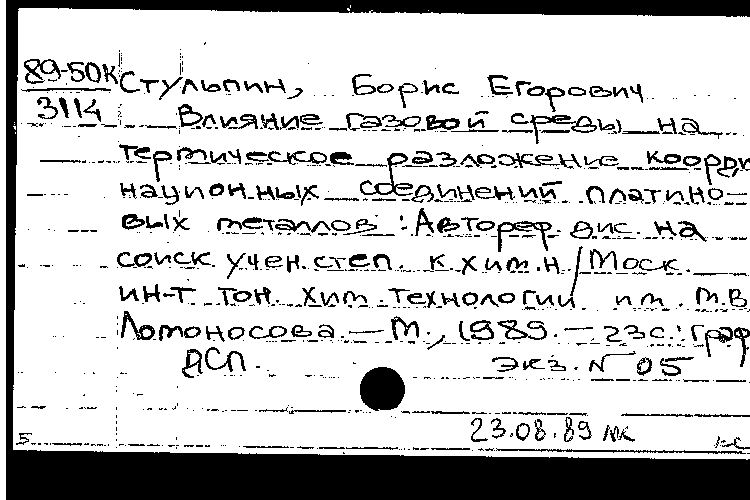 89-50К Стульпин, Борис Егорович
3114 Влияние газовой среды на
термическое разложение коорди
национных соединений платино-
вых металлов : Автореф. дис. на
соиск. учен. степ. к.хим.н / Моск.
ин-т тон. хим. технологии им. М.В
Ломоносова. — М., 1989. — 23 с.: граф
ДСП. экз. N 05
23.08.89
Б